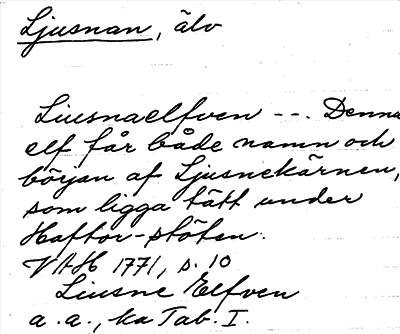 Ljusnan, älv
Liusnaelfven --- Denna
elf får både namn och
början af Ljusnekärnen,
som ligga tätt under
Haftor-stöten.
VAH 1771, s. 10
Liusne Elfven
a. a., ka Tab. I.